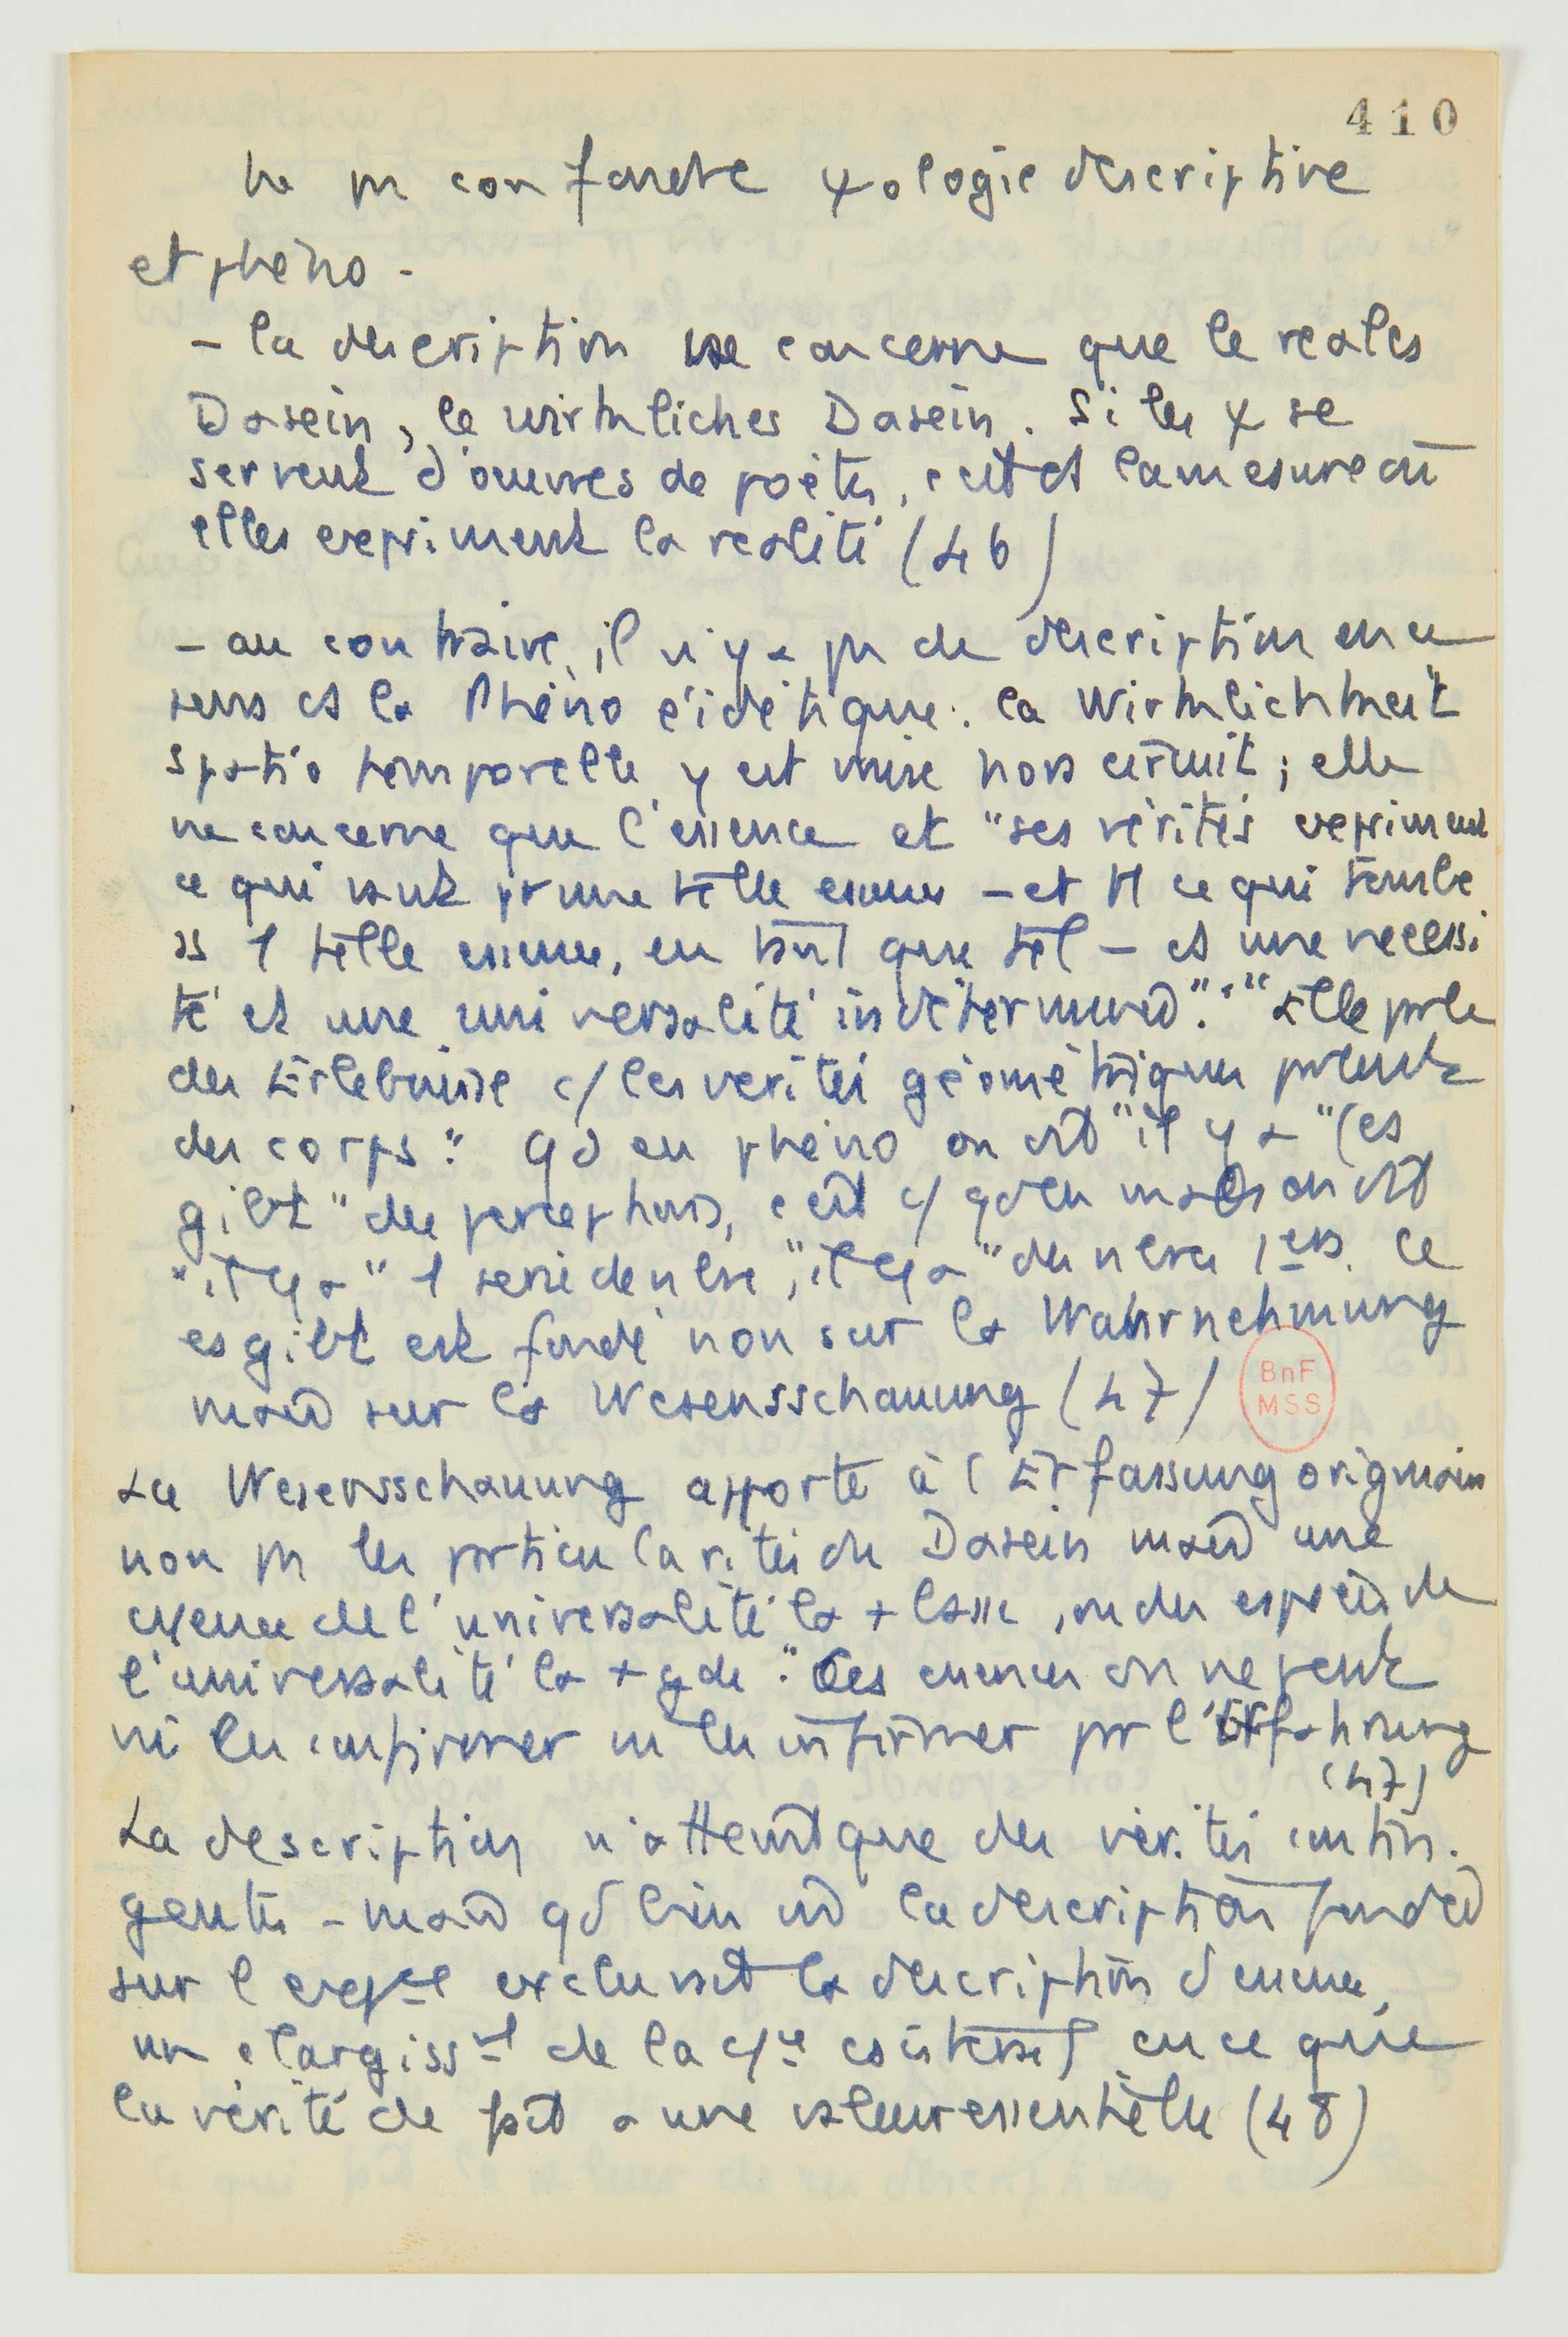 410
ne pas confondre ψologie descriptive
et phéno -
- la description ne concerne que le reales
Dasein, le wirkliches Dasein. Si les ψ se
servent d'œuvres de poètes, c'est ds la mesure où
elles expriment la réalité (46)
- au contraire, il n'y a pas de description en ce
sens ds la Phéno eidétique : la Wirklichkeit
spatio temporelle y est mise hors circuit ; elle
ne concerne que l'essence et "ses vérités expriment
ce qui vaut pr une telle essence - et tt ce qui tombe
ss 1 telle essence, en tant que tel - ds une nécessi
té et une universalité indéterminés". "Elle parle
des Erlebnisse c/ les vérités géométriques parlent
des corps". Qd en phéno on dit "il y a" (es
gibt" des perceptions, c'est c/ qd en maths on dit
"il y a" 1 série de nbres, "il y a" des nbres 1ers. Ce
es gibt est fondé non sur la Wahrnehmung
mais sur la Wesensschauung (47)
BnF
MSS
La Wesensschauung apporte à l'Erfassung originaire
non pas les particularités du Dasein mais une
essence de l'universalité la + basse, ou des espèces de
l'universalité la + gde". Ces essences on ne peut
ni les confirmer ni les infirmer par l'Erfahrung
(47)
La description n'atteint que des vérités contin-
gentes - mais qd bien la description fondée
sur l exclurait la description d'essence,
un elargisst de la existerait en ce que
la vérité de fait a une valeur essentielle (48)